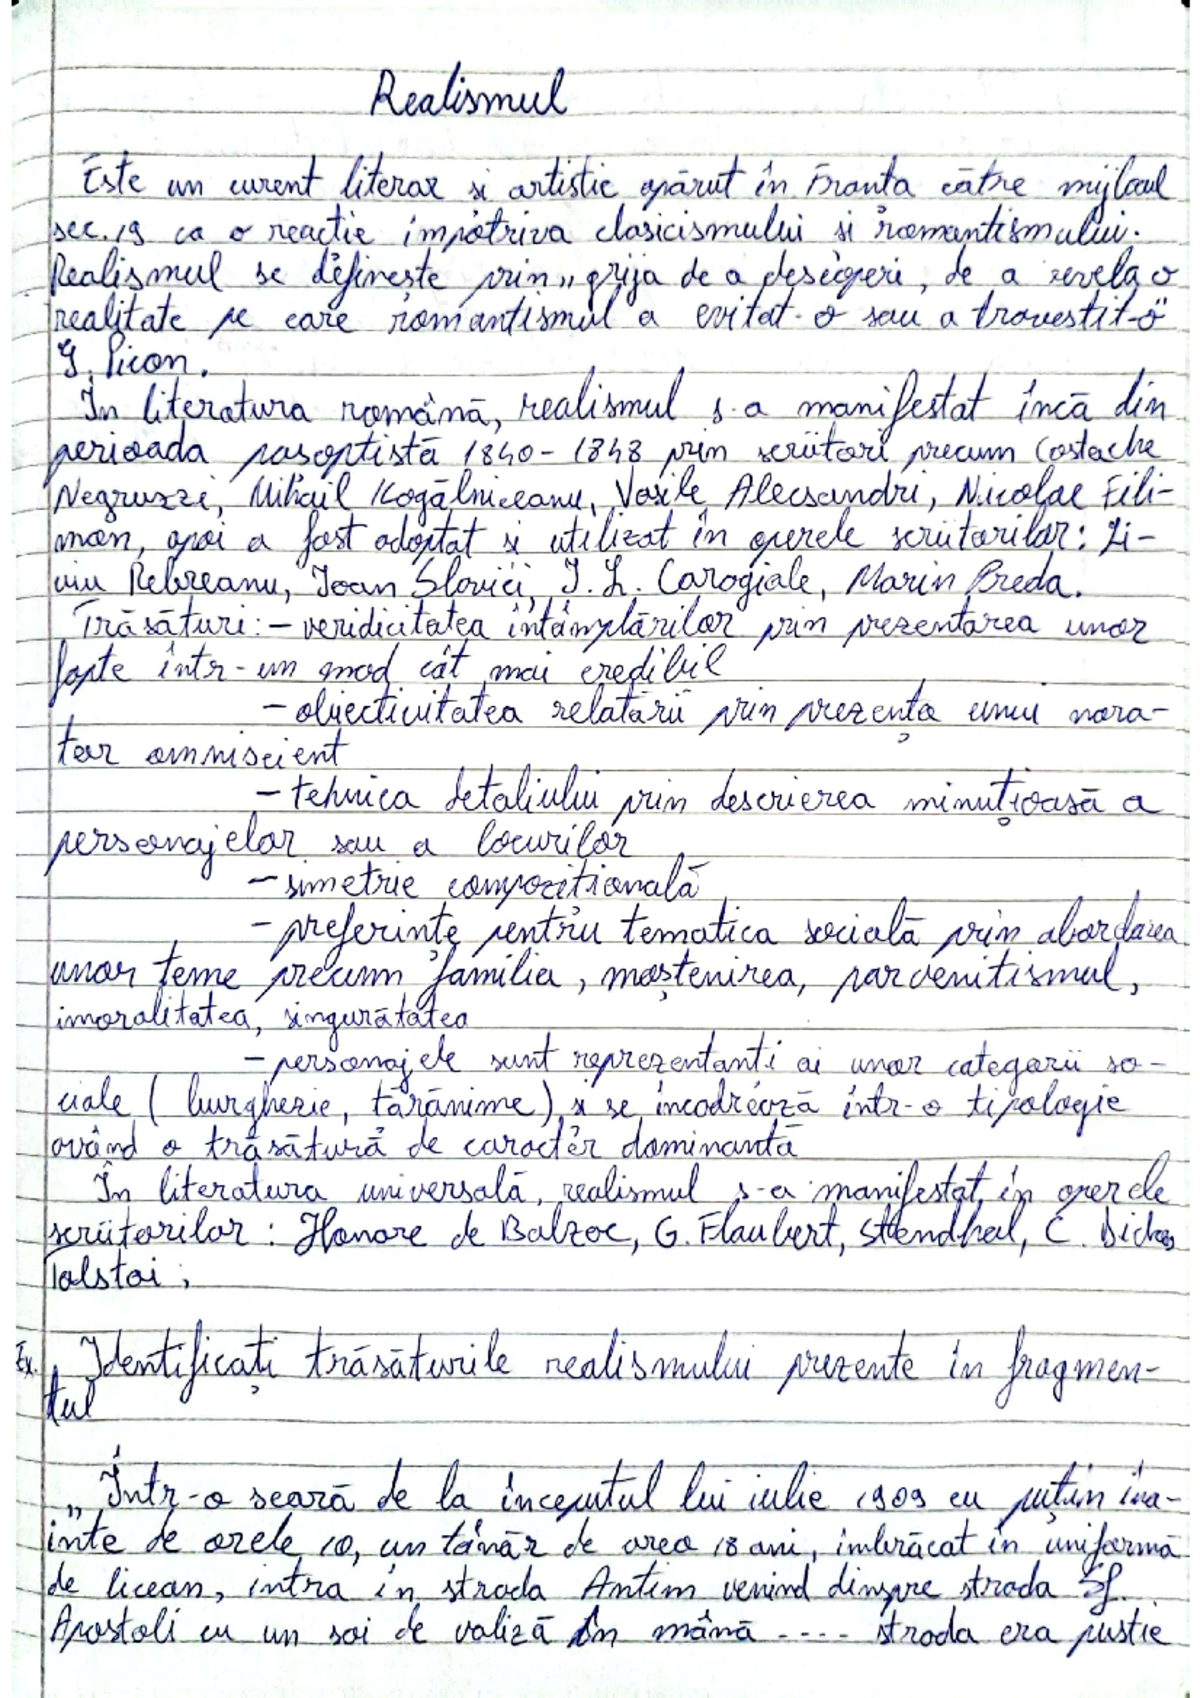 Realismul
Este un curent literar si artistic apărut în Franta către mijlocul
sec. 19 ca o reactie împotriva clasicismului si romantismului.
Realismul se defineste prin „grija de a descoperi, de a revela o
realitate pe care romantismul a evitat-o sau a travestit-o"
G. Picon.
In literatura română, realismul s-a manifestat încă din
perioada pasoptistă 1840-1848 prin scriitori precum Costache
Negruzzi, Mihail Kogălniceanu, Vasile Alecsandri, Nicolae Fili-
mon, apoi a fost adoptat si utilizat în operele scriitorilor: Li-
viu Rebreanu, Ioan Slavici, I. L. Caragiale, Marin Preda.
Trăsături: - veridicitatea întâmplărilor prin prezentarea unor
fapte într-un mod cât mai credibil
- obiectivitatea relatării prin prezența unui nara-
tor omniscient
- tehnica detaliului prin descrierea minuțioasă a
personajelor sau a locurilor
- simetrie compozitională
- preferințe pentru tematica socială prin abordarea
unor teme precum familia, moștenirea, parvenitismul,
imoralitatea, singurătatea
- personajele sunt reprezentanti ai unor categorii so-
ciale (burghezie, tărănime) si se încadrează într-o tipologie
având o trăsătură de caracter dominantă
În literatura universală, realismul s-a manifestat in operele
scriitorilor: Honore de Balzac, G. Flaubert, Sthendhal, C. Dickes
Talstoi,
Ex. Identificați trăsăturile realismului prezente in fragmen-
tul
„Într-o seară de la începutul lui iulie 1909 cu puțin îna-
inte de orele 10, un tânăr de vreo 18 ani, îmbrăcat în uniformă
de licean, intra în strada Antim venind dinspre strada Sf.
Apostoli cu un soi de valiză în mână .... strada era pustie